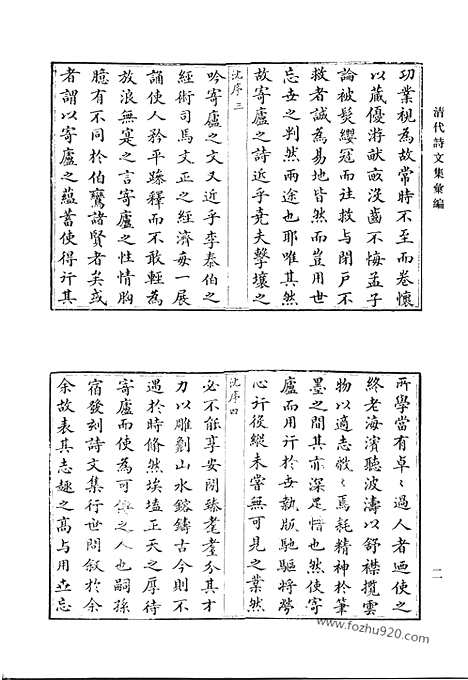 清代詩文集彙編
功業視為故常時不至而卷懷
以藏優游猷畝沒齒不悔孟子
論被髮纓冠而往救與閉戶不
救者誠為易地皆然而豈用世
忘世之判然兩途也耶唯其然
故寄廬之詩近乎堯夫擊壤之
沈序三
吟寄廬之文又近乎李泰伯之
經術司馬文正之經濟每一展
誦使人矜平躁釋而不敢輕為
放浪無寔之言寄廬之性情胸
臆有不同於伯鸞諸賢者矣或
者謂以寄廬之蘊蓄使得行其
所學當有卓〻過人者迺使之
終老海濱聽波濤以舒襟攬雲
物以適志敝〻焉耗精神於筆
墨之間其亦深足惜也然使寄
廬而用行於世執版馳驅將勞
心行役縱未嘗無可見之業然
沈序四
必不能享安閒臻耄耋分其才
力以雕劖山水鎔鑄古今則不
遇於時翛然埃壒正天之厚待
寄廬而使為可傳之人也嗣孫
宿發刻詩文集行世問叙於余
余故表其志趣之高與用世忘
一一
www.fozhu920.com